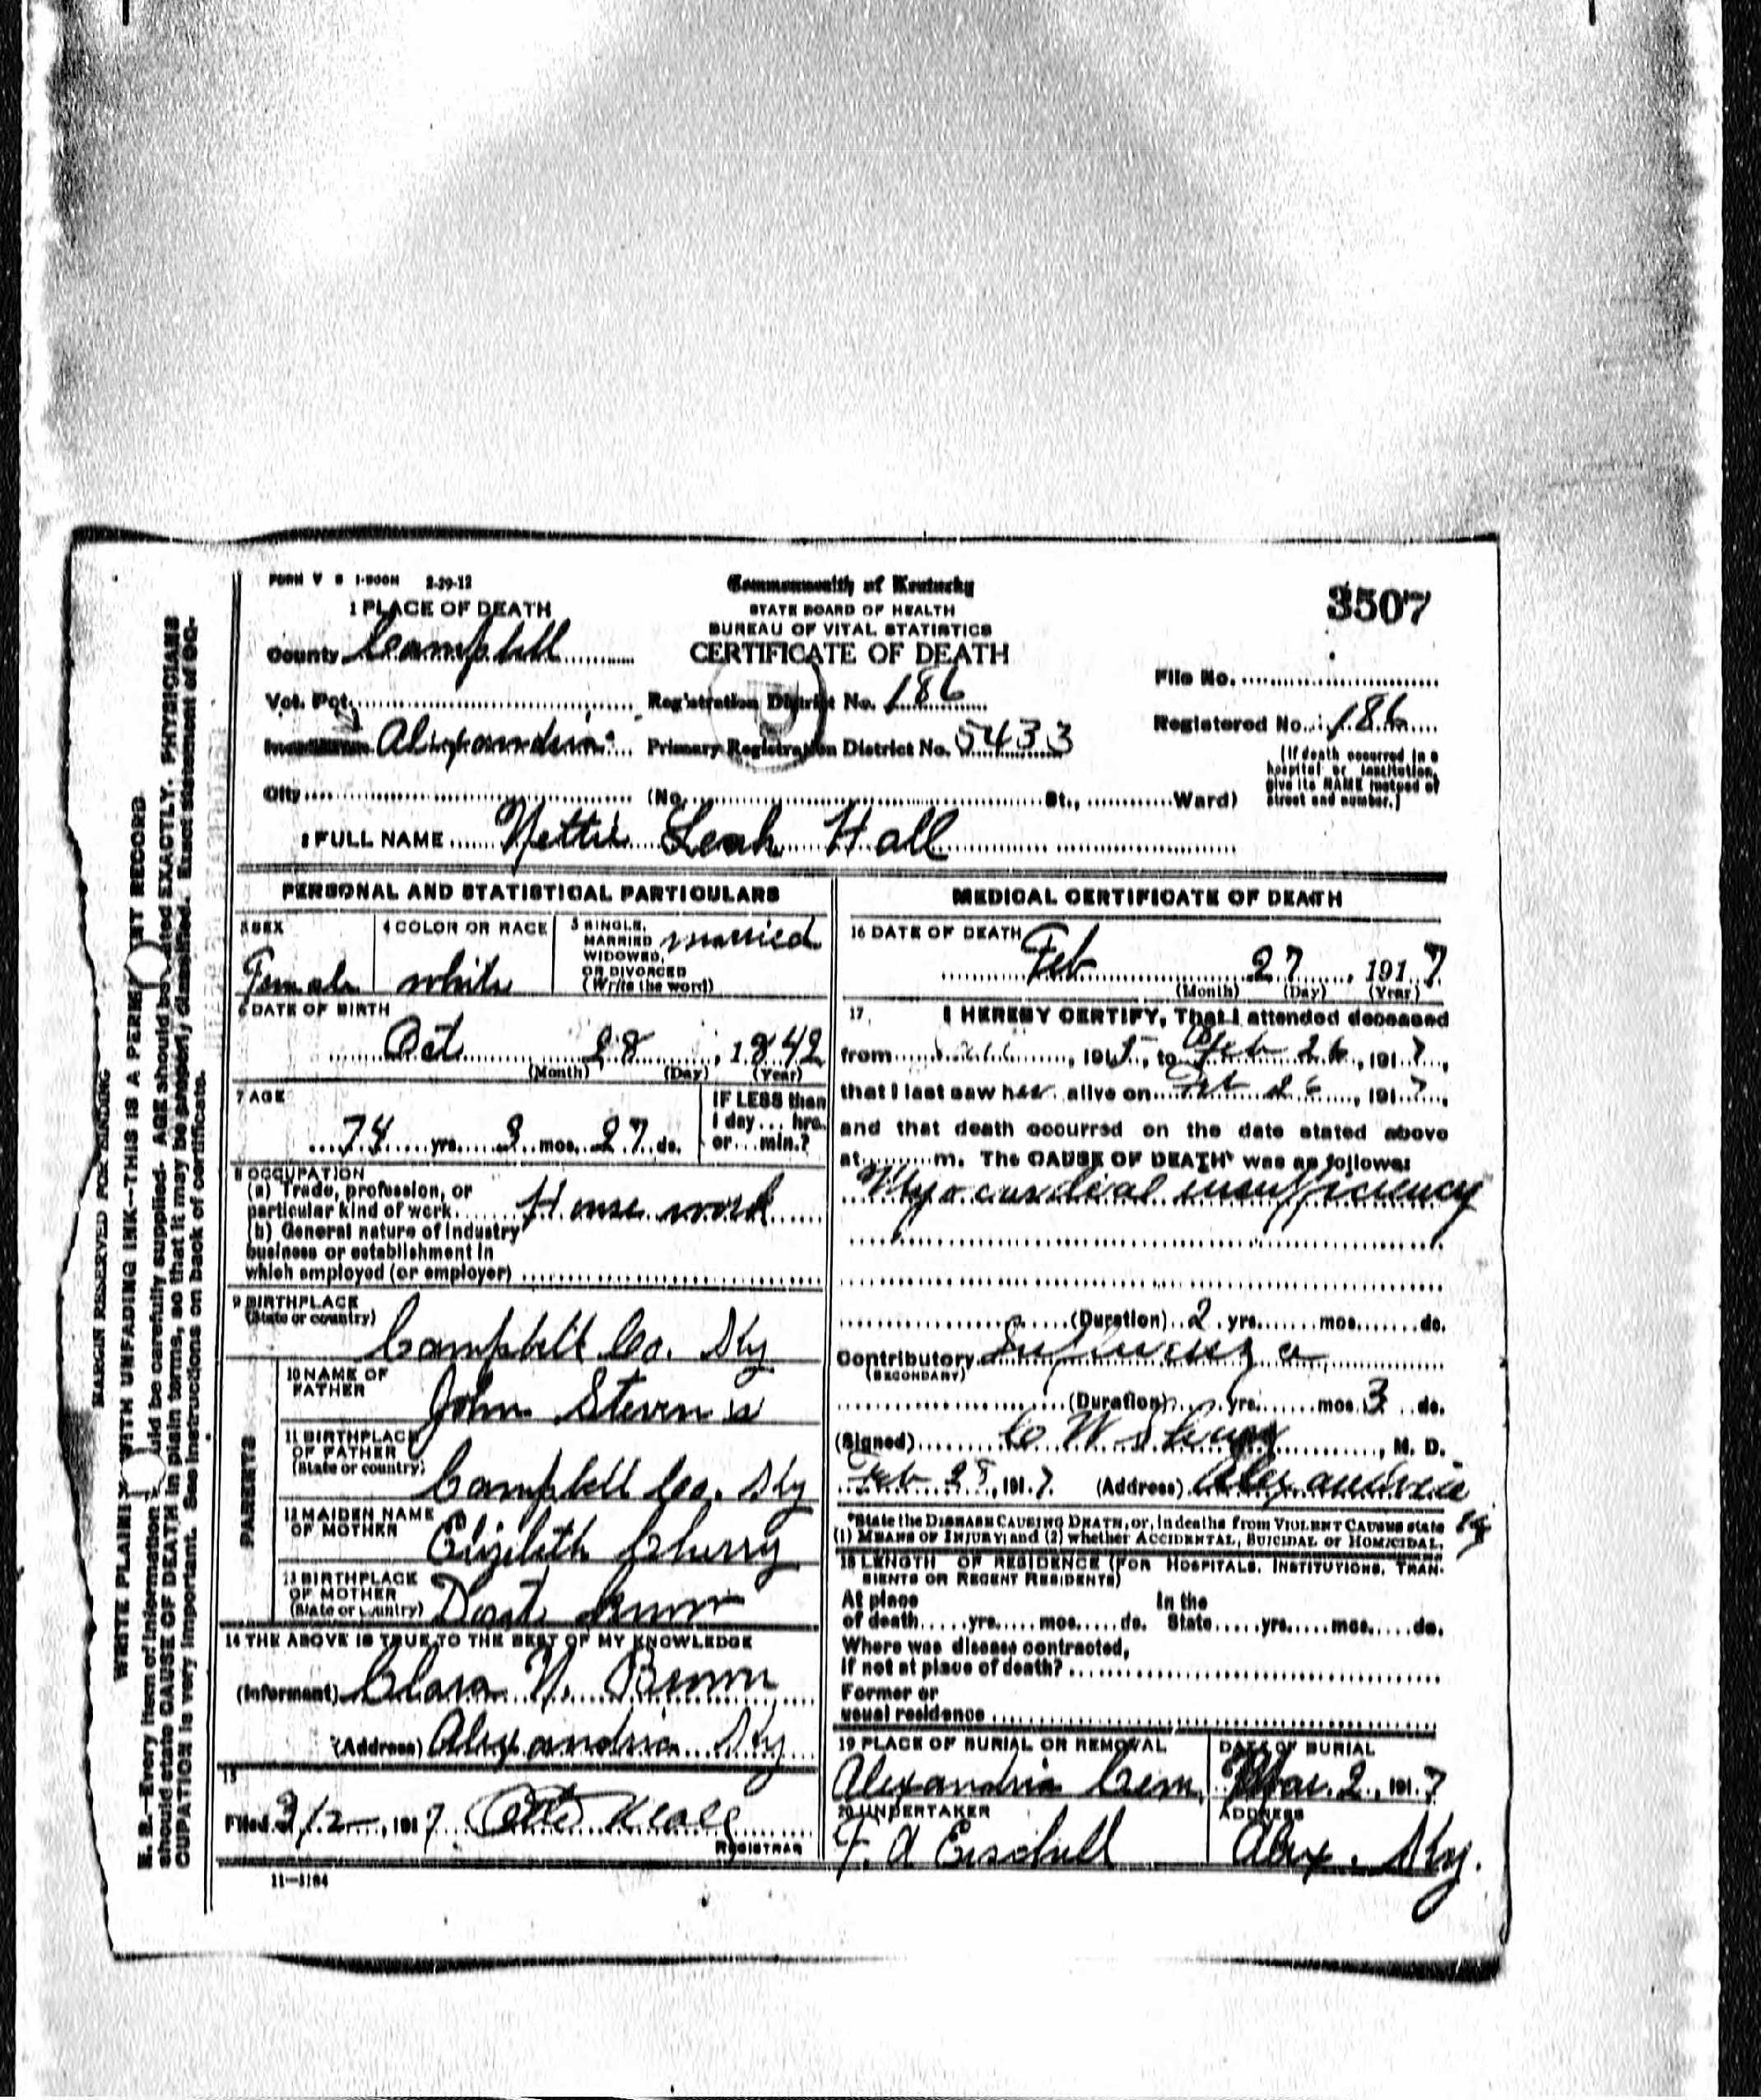 FORM V S 1-500M 2-29-12
Commonwealth of Kentucky
STATE BOARD OF HEALTH
BUREAU OF VITAL STATISTICS
CERTIFICATE OF DEATH
3507
1 PLACE OF DEATH
County Campbell
Vot. Pct.
Alexandria
City
Registration District No. 186
Primary Registration District No. 5433
File No.
Registered No. 186
(No. St., Ward)
[If death occurred in a
hospital or institution,
give its NAME instead of
street and number.]
2 FULL NAME Nettie Leah Hall
PERSONAL AND STATISTICAL PARTICULARS
3 SEX
Female
4 COLOR OR RACE
white
5 SINGLE,
MARRIED
WIDOWED,
OR DIVORCED
(Write the word)
married
6 DATE OF BIRTH
Oct 28, 1842
(Month) (Day) (Year)
7 AGE
74 yrs. 3 mos. 27 ds.
IF LESS than
1 day... hrs.
or... min.?
8 OCCUPATION
(a) Trade, profession, or
particular kind of work House work
(b) General nature of industry
business or establishment in
which employed (or employer)
9 BIRTHPLACE
(State or country)
Campbell Co. Ky
PARENTS
10 NAME OF
FATHER
John Stevens
11 BIRTHPLACE
OF FATHER
(State or country)
Campbell Co. Ky
12 MAIDEN NAME
OF MOTHER
Elizibeth Cherry
13 BIRTHPLACE
OF MOTHER
(State or country)
Dont know
14 THE ABOVE IS TRUE TO THE BEST OF MY KNOWLEDGE
(Informant) Clara N. Brown
(Address) Alexandria Ky
15
Filed 3/2, 1917
REGISTRAR
11-3184
MEDICAL CERTIFICATE OF DEATH
16 DATE OF DEATH
Feb 27, 1917
(Month) (Day) (Year)
17, I HEREBY CERTIFY, That I attended deceased
from , 1915, to Feb 26, 1917,
that I last saw her alive on Feb 26, 1917,
and that death occurred on the date stated above
at m. The CAUSE OF DEATH* was as follows:
Myocardial insufficiency
(Duration) 2 yrs. mos. ds.
Contributory Influenza
(SECONDARY)
(Duration) yrs. mos. 3 ds.
(Signed) C W , M. D.
Feb 28, 1917. (Address) Alexandria
Ky
*State the DISEASE CAUSING DEATH, or, in deaths from VIOLENT CAUSES state
(1) MEANS OF INJURY; and (2) whether ACCIDENTAL, SUICIDAL OR HOMICIDAL.
18 LENGTH OF RESIDENCE (FOR HOSPITALS, INSTITUTIONS, TRAN-
SIENTS OR RECENT RESIDENTS)
At place In the
of death yrs. mos. ds. State yrs. mos. ds.
Where was disease contracted,
If not at place of death?
Former or
usual residence
19 PLACE OF BURIAL OR REMOVAL
Alexandria Cem.
DATE OF BURIAL
Mar. 2, 1917
20 UNDERTAKER
F. A
ADDRESS
Alex. Ky.
MARGIN RESERVED FOR BINDING
WRITE PLAINLY WITH UNFADING INK--THIS IS A PERMANENT RECORD
N. B.--Every item of information should be carefully supplied. AGE should be stated EXACTLY. PHYSICIANS
should state CAUSE OF DEATH in plain terms, so that it may be properly classified. Exact statement of OC-
CUPATION is very important. See instructions on back of certificate.